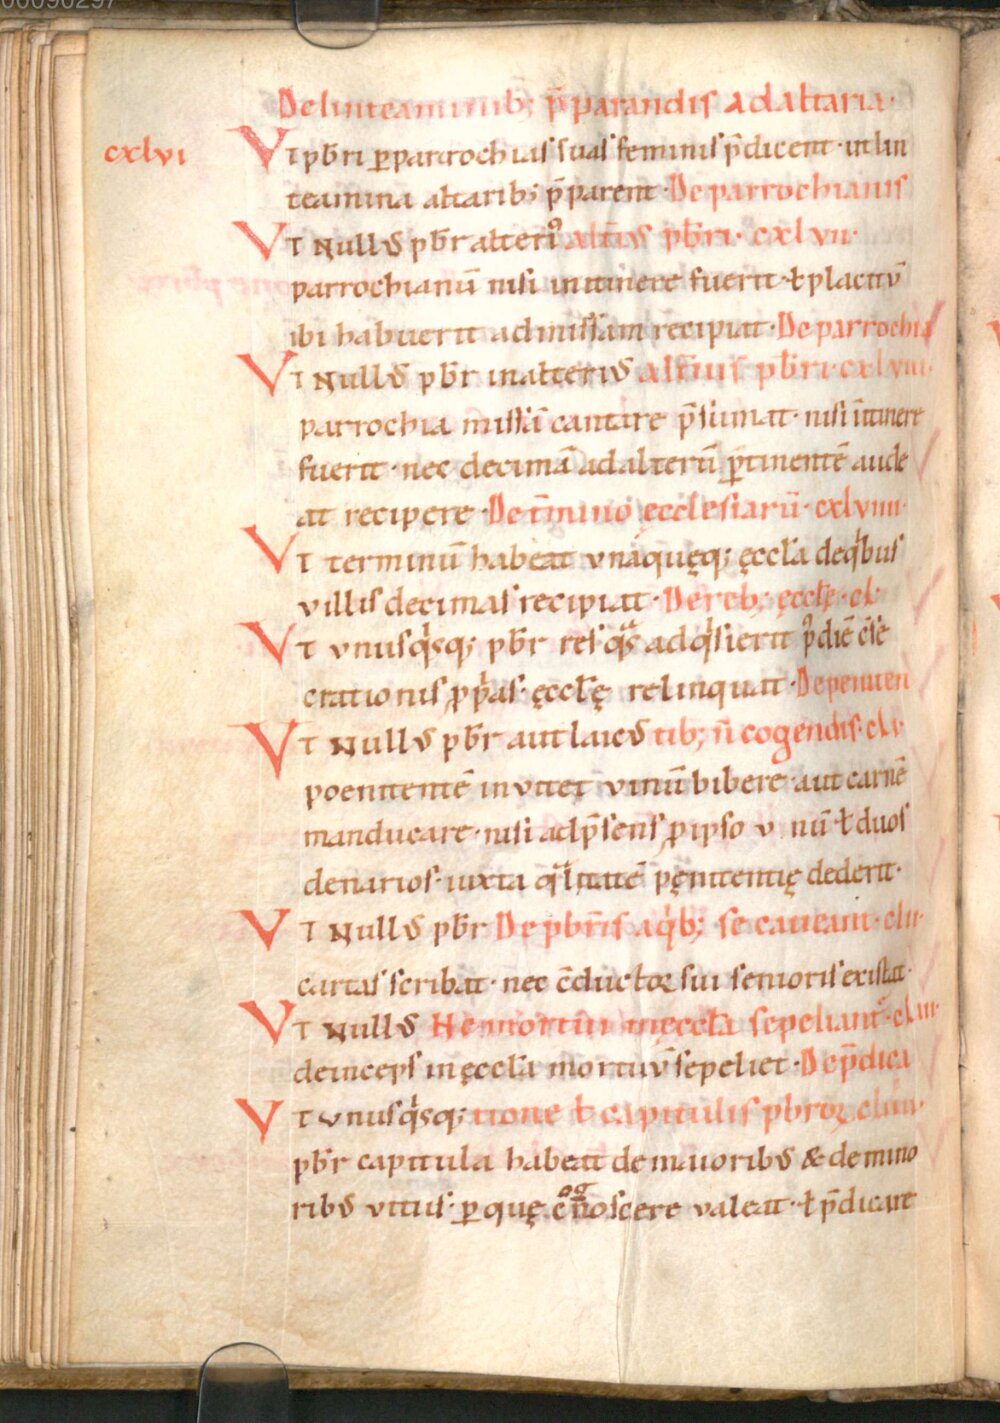 00090297
De linteaminib; p̄parandis ad altaria·
cxlvi Vt pb̄ri ꝑ parrochias suas feminis p̄dicent· ut lin
teamina altarib; p̄parent· De parrochianis
Vt nullus pb̄r alteri᾽ alt̄ius pb̄ri· cxlvii·
parrochianū nisi in itinere fuerit· ł placitū
ibi habuerit ad missam recipiat· De parrochia
Vt nullus pb̄r in alterius alt̄ius pb̄ri· cxlviii·
parrochia missā cantare p̄sumat· nisi ī itinere
fuerit· nec decimā ad alterū ꝑtinentē aude
at recipere· De t̄mino ęcclesiarū· cxlviiii·
Vt terminū habeat unaquęq; ęccła de qͥbus
villis decimas recipiat· De reb; ęccłę· cl·
Vt unusqͥsq; pb̄r res qͣs adqͥsierit p᾽ diē c̄se
crationis ꝓpͥas· ęccłę relinquat· De peniten
Vt nullus pb̄r aut laicus tib; n̄ cogendis· cli·
poenitentē invitet vinū bibere· aut carnē
manducare· nisi ad p̄sens ꝓ ipso u nū ł duos
denarios· iuxta qͣlitatē pęnitentię dederit·
Vt nullus pb̄r De pb̄ris a qͥb; se caveant· clii·
cartas scribat· nec c̄ductoꝝ sui senioris existat·
Vt nullus Ne mortui in ęccła sepeliant᾽· cliii·
deinceps in ęccła mortuū sepeliet· De p̄dica
Vt unusqͥsq; tione ł capitulis pb̄roꝝ cliiii·
pb̄r capitula habeat de maioribus & de mino
ribus vitiis· ꝑ quę c̄noscere valeat· ł p̄dicare